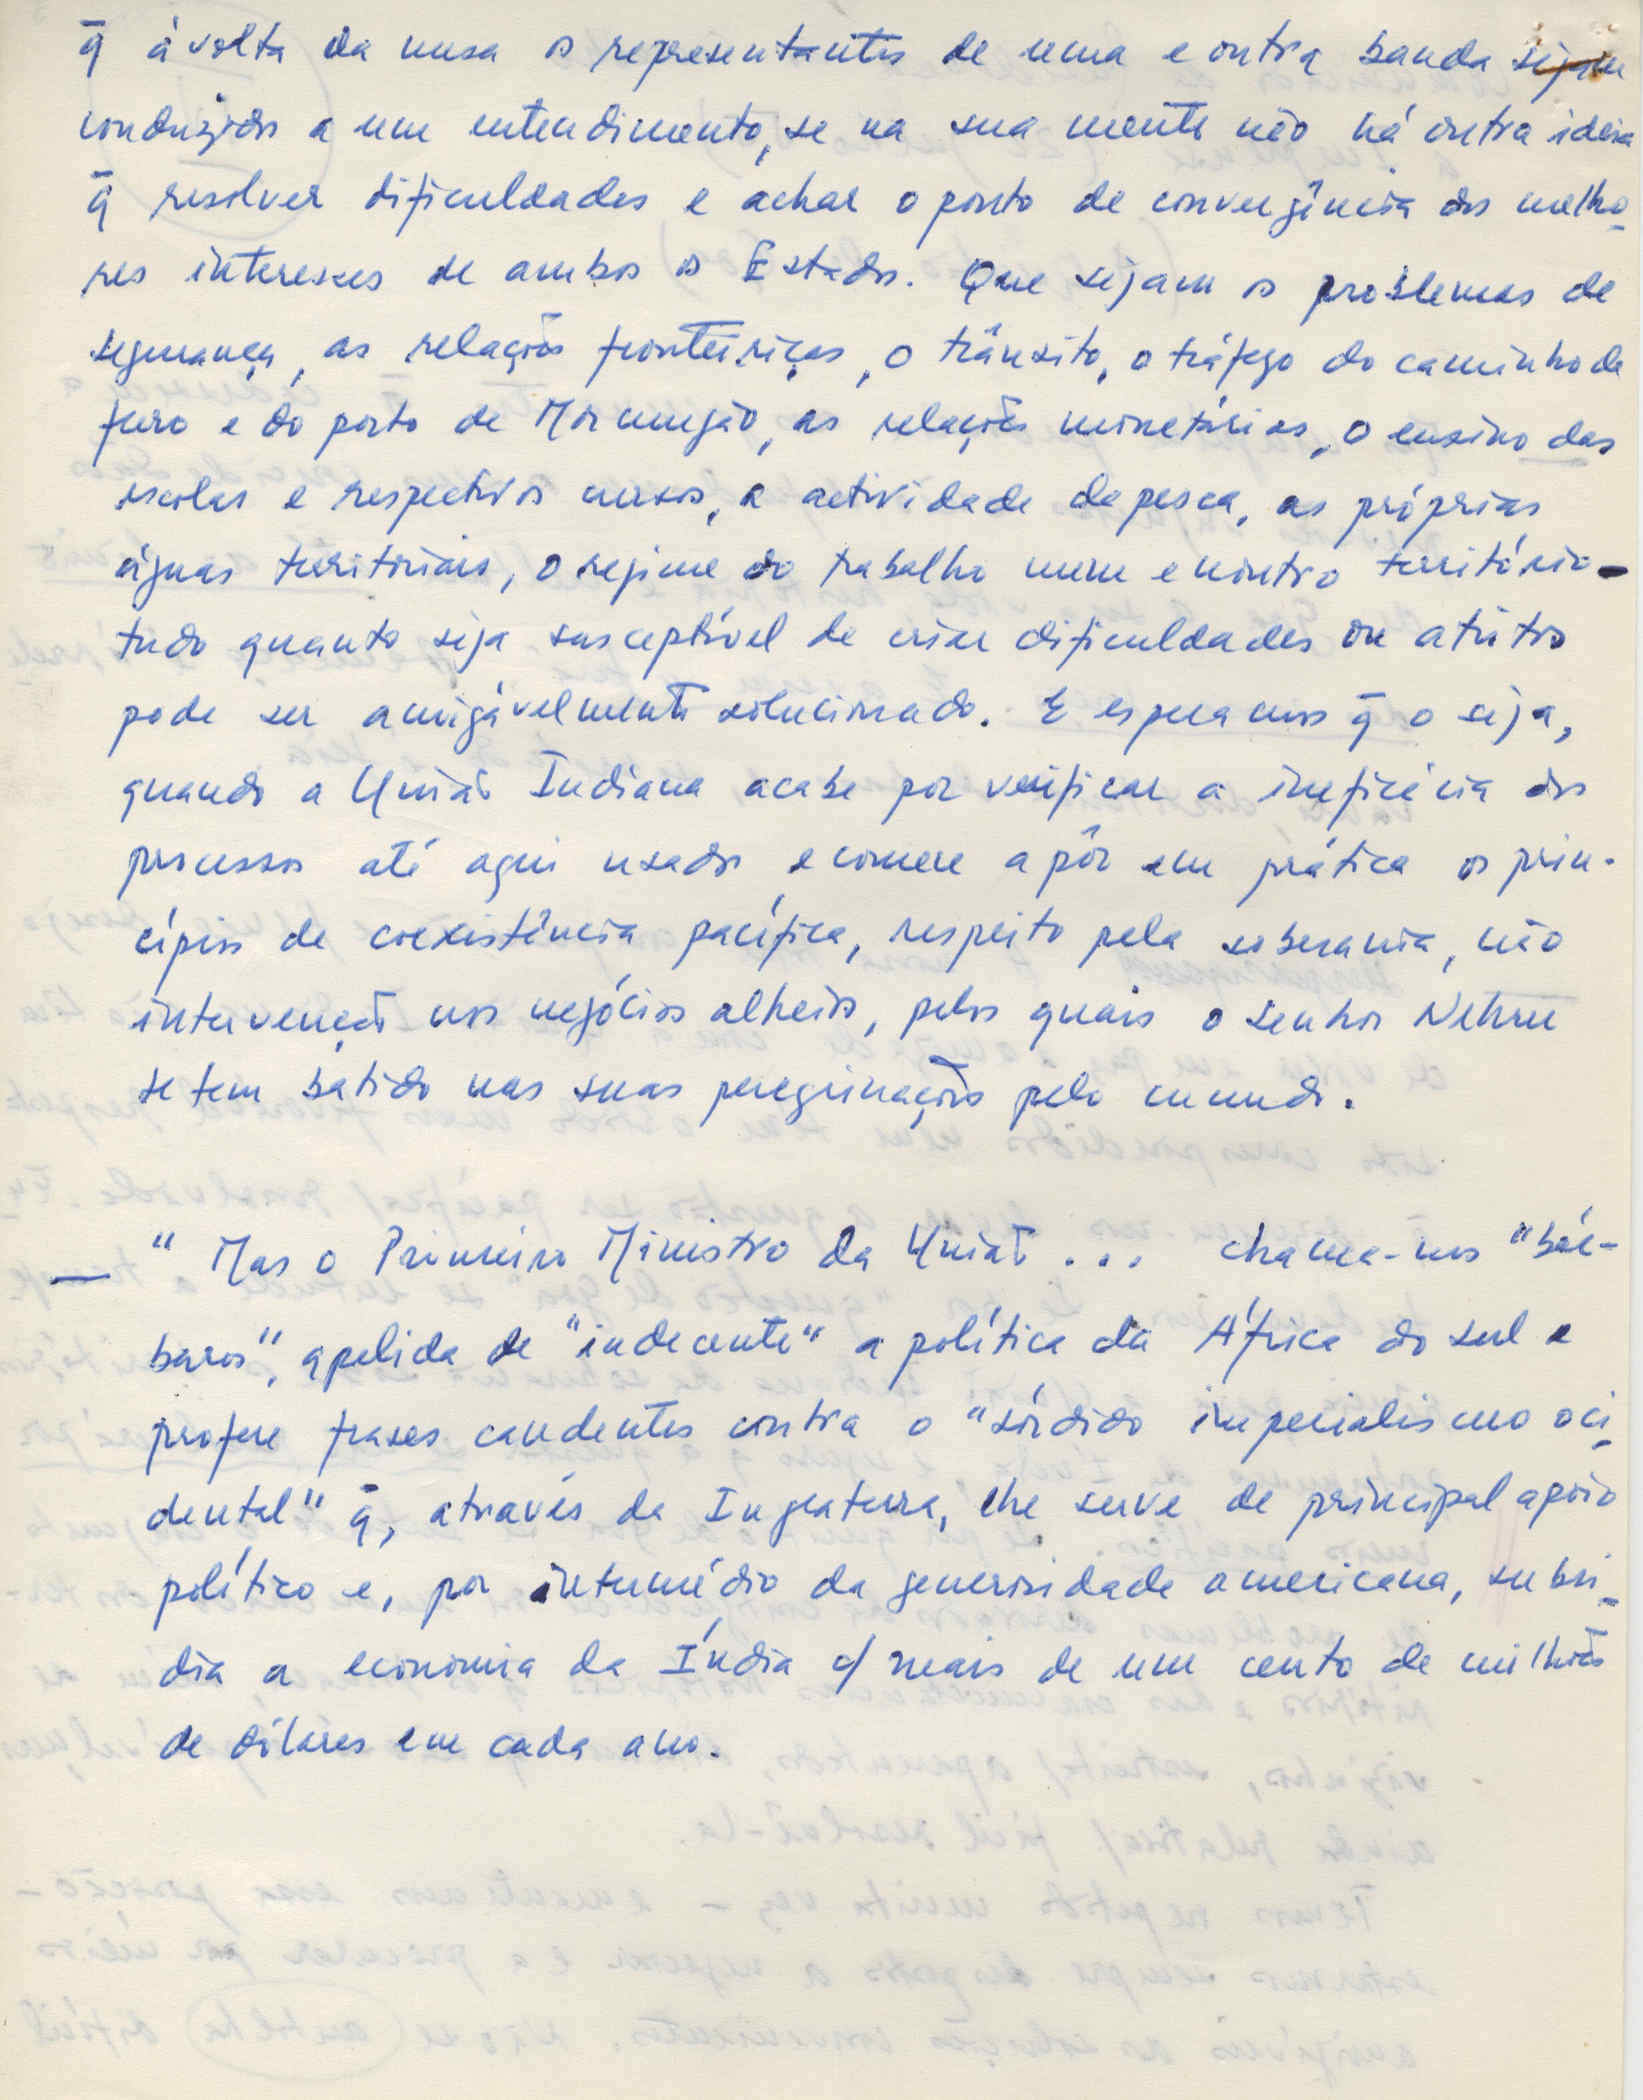 q̄ à volta da mesa os representantes de uma e outra banda sejam
conduzidos a um entendimento, se na sua mente não há outra ideia
q̄ resolver dificuldades e achar o ponto de convergência dos melho-
res interesses de ambos os Estados. Que sejam os problemas de
segurança, as relações fronteiriças, o trânsito, o tráfego do caminho de
ferro e do porto de Mormugão, as relações monetárias, o ensino das
escolas e respectivos cursos, a actividade da pesca, as próprias
águas territoriais, o regime do trabalho num e noutro território –
tudo quanto seja susceptível de criar dificuldades ou atrito
pode ser amigàvelmente solucionado. E esperamos q̄ o seja,
quando a União Indiana acabe por verificar a ineficácia dos
processos até aqui usados e comece a pôr em prática os prin-
cípios de coexistência pacífica, respeito pela soberania, não
intervenção nos negócios alheios, pelos quais o senhor Nehru
se tem batido nas suas peregrinações pelo mundo.
— " Mas o Primeiro Ministro da União ... chama-nos "bár-
baros", apelida de "indecente" a política da África do sul e
profere frases candentes contra o "sórdido imperialismo oci-
dental" q̄, através da Inglaterra, lhe serve de principal apoio
político e, por intermédio da generosidade americana, subsi-
dia a economia da Índia c/ mais de um cento de milhões
de dólares em cada ano.